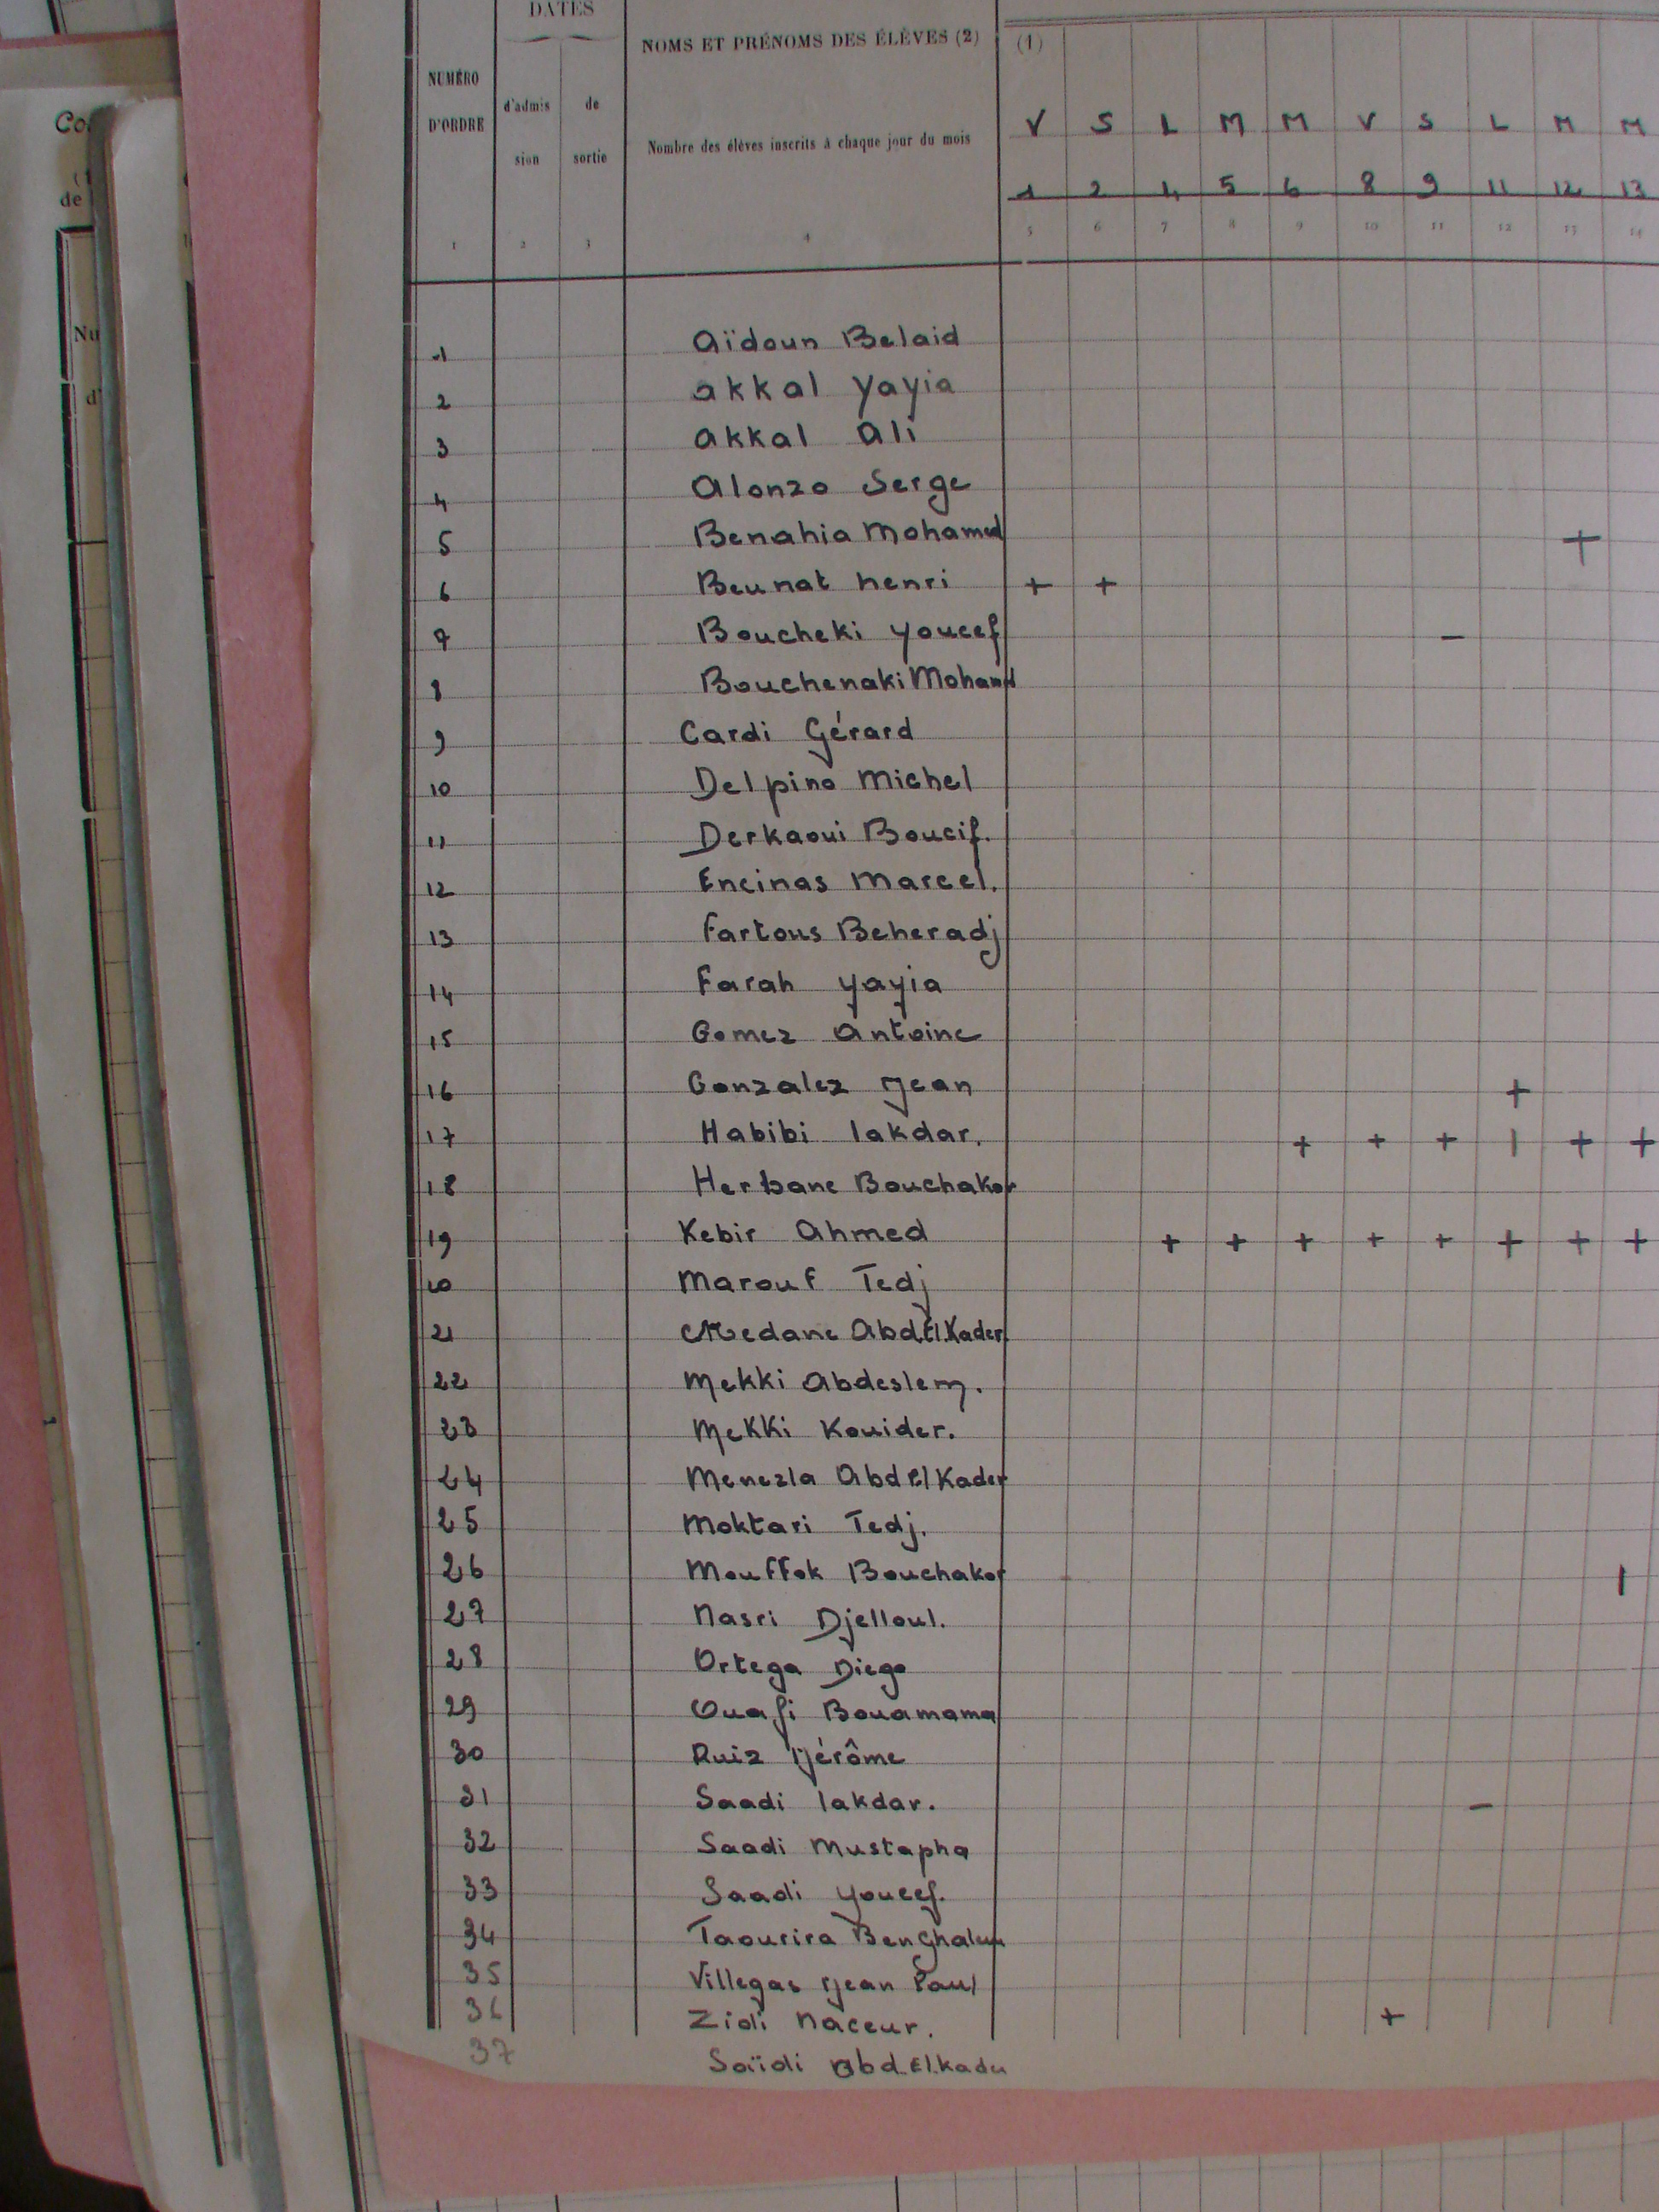 DATES
NOMS ET PRÉNOMS DES ÉLÈVES (2) (1)
NUMÉRO D'ORDRE d'admission de sortie
Nombre des élèves inscrits à chaque jour du mois
V S L M M V S L M M
1 2 4 5 6 8 9 11 12 13
1 2 3 4 5 6 7 8 9 10 11 12 13 14
1 Aïdoun Belaid
2 akkal yayia
3 akkal Ali
4 Alonzo Serge
5 Benahia Mohamed +
6 Beunat henri + +
7 Boucheki youcef –
8 Bouchenaki Mohamed
9 Cardi Gérard
10 Delpino Michel
11 Derkaoui Boucif.
12 Encinas Marcel.
13 Fartous Beheradj
14 Farah yayia
15 Gomez Antoine
16 Gonzalez Jean +
17 Habibi lakdar. + + + | + +
18 Herbane Bouchakor
19 Kebir Ahmed + + + + + + + +
20 Marouf Tedj
21 Medane Abd.El.Kader
22 Mekki Abdeslem.
23 Mekki Kouider.
24 Menezla Abd El Kader
25 Moktari Tedj.
26 Mouffok Bouchakor |
27 Nasri Djelloul.
28 Ortega Diego
29 Ouafi Bouamama
30 Ruiz Jérôme
31 Saadi lakdar. –
32 Saadi Mustapha
33 Saadi youcef.
34 Taourira
35 Villegas Jean Paul
36 Zidi Naceur. +
37 Saïdi Abd.El.Kader
Nu
de
d'